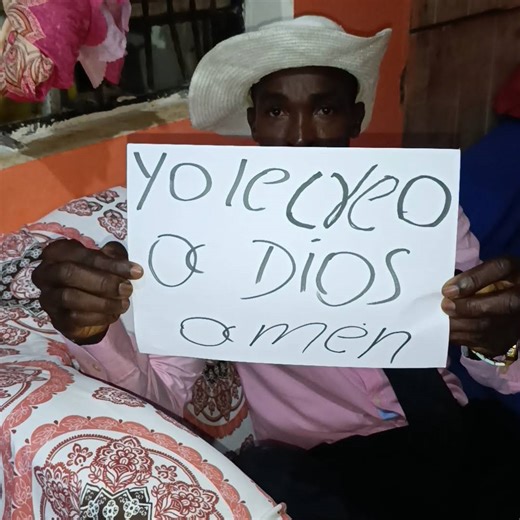 Yo le creo
a Dios
amen